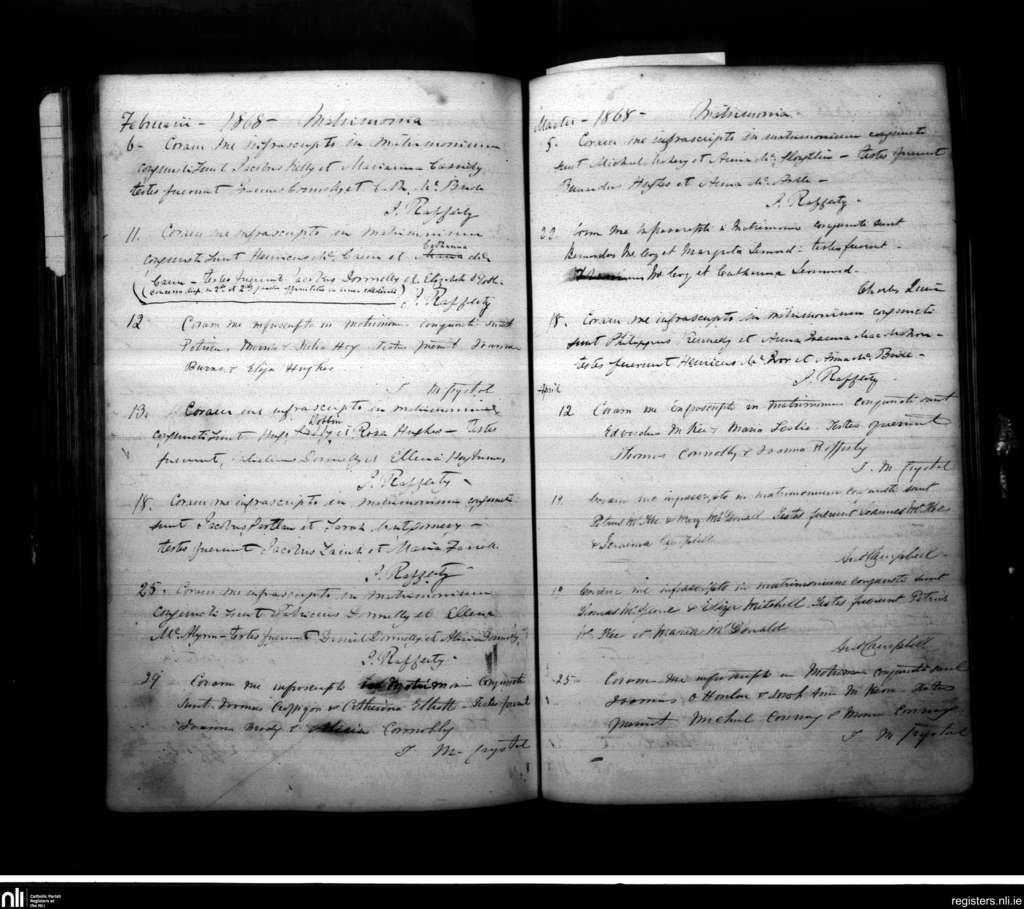 Februarii - 1868 - Matrimonia
6 - Coram me infrascripto in matrimonium
conjuncti sunt Jacobus Kelly et Marianna Cassidy
testes fuerunt Ormsby et Mc Bride
J. Rafferty
11. Coram me infrascripto in matrimonium
Catherina
conjuncti sunt Henricus Mc Cann et Mc
Cann - testes fuerunt Jacobus Donnelly et Elizabeth
J. Rafferty
12 Coram me infrascripto in matrimon. conjuncti sunt
Patricius Morris & Julia Hoy testes fuerunt Joanna
Burns & Eliza Hughes
J McCrystal
13. Coram me infrascripto in matrimonium
Dobbin
conjuncti sunt Hugo et Rosa Hughes - testes
fuerunt, Donnelly et Ellena
J. Rafferty -
18. Coram me infrascripto in matrimonium conjuncti
sunt Jacobus et Sarah Montgomery -
testes fuerunt Jacobus et Maria
J. Rafferty
25. Coram me infrascripto in matrimonium
conjuncti sunt Patricius Donnelly et Ellena
Mc Glynn - testes fuerunt Daniel Donnelly et Alicia Donnelly
J. Rafferty -
29 Coram me infrascripto matrimon conjuncti
sunt Joannes & Catherina Elliott - Testes fuerunt
Joanna Brody & Alicia Connolly
J McCrystal
Martii - 1868 - Matrimonia -
5. Coram me infrascripto in matrimonium conjuncti
sunt Michael et Anna Mc Glaughlin - testes fuerunt
Bernardus Hughes et Anna Mc Ardle -
J. Rafferty -
22 Coram me infrascripto in Matrimonio conjuncti sunt
Bernardus Mc Coy et Margrita Lennard: testes fuerunt -
Mc Coy et Catherina Lennard -
Charles Quin
18. Coram me infrascripto in matrimonium conjuncti
sunt Philippus Kennedy et Anna
testes fuerunt Henricus Mc et Anna Mc Bride -
J. Rafferty -
April
12 Coram me infrascripto in matrimonium conjuncti sunt
Edvardus McKee & Maria Leslie. Testes fuerunt
Thomas Connolly & Joanna Rafferty
J. McCrystal
19 Coram me infrascripto in matrimonium conjuncti sunt
Petrus McKee & Mary McDonald Testes fuerunt Joannes McKee
& Jemima Campbell
And Campbell -
19 Coram me infrascripto in matrimonium conjuncti sunt
Thomas McGlone & Eliza Mitchell Testes fuerunt Patrick
McKee et Maria McDonald
And Campbell
25 - Coram me infrascripto in Matrimon conjuncti sunt
Joannes O Hanlon & Sarah Ann McKeon testes
fuerunt Michael Conway & Maria Conway
J McCrystal
nli
Catholic Parish
Registers at
the NLI
registers.nli.ie